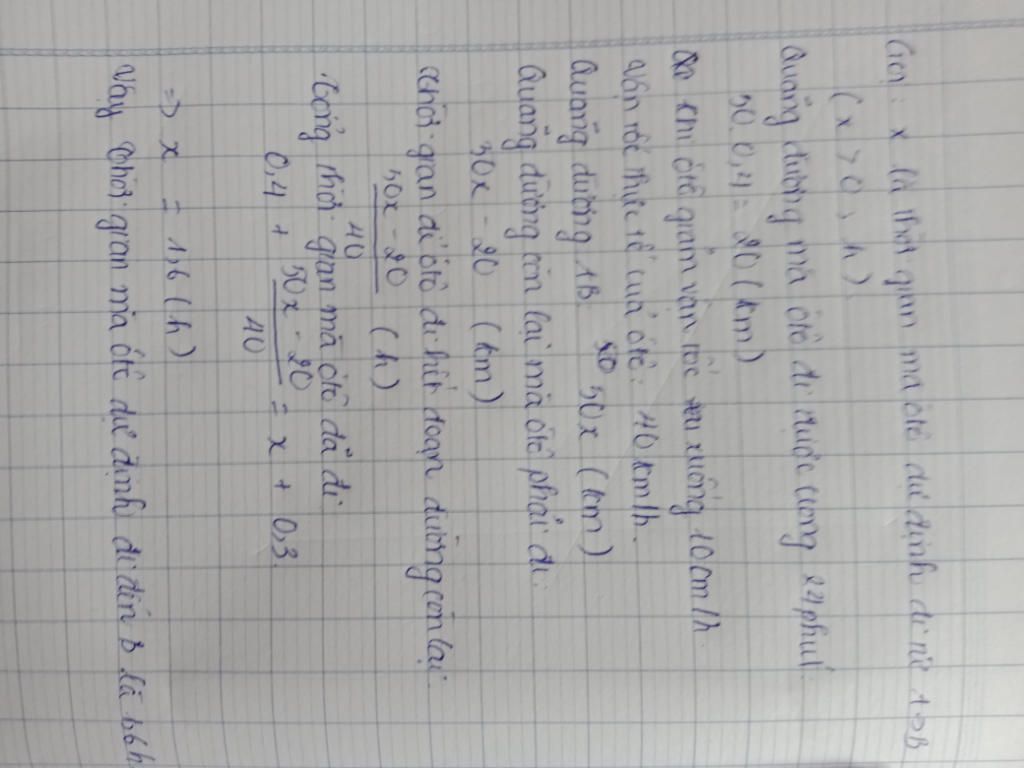 Gọi: x là thời gian mà ôtô dự định đi từ A→B
(x > 0, h)
Quãng đường mà ôtô đi được trong 24 phút
50.0,4 = 20 (km)
khi ôtô giảm vận tốc xuống 10cm/h
Vận tốc thực tế của ôtô: 40km/h.
Quãng đường AB: 50x (km)
Quãng đường còn lại mà ôtô phải đi:
50x - 20 (km)
Thời gian để ôtô đi hết đoạn đường còn lại:
50x - 20
40
(h)
Tổng thời gian mà ôtô đã đi
0,4 + 50x - 20 = x + 0,3
40
=> x = 1,6 (h)
Vậy thời gian mà ôtô dự định đi đến B là 1,6h